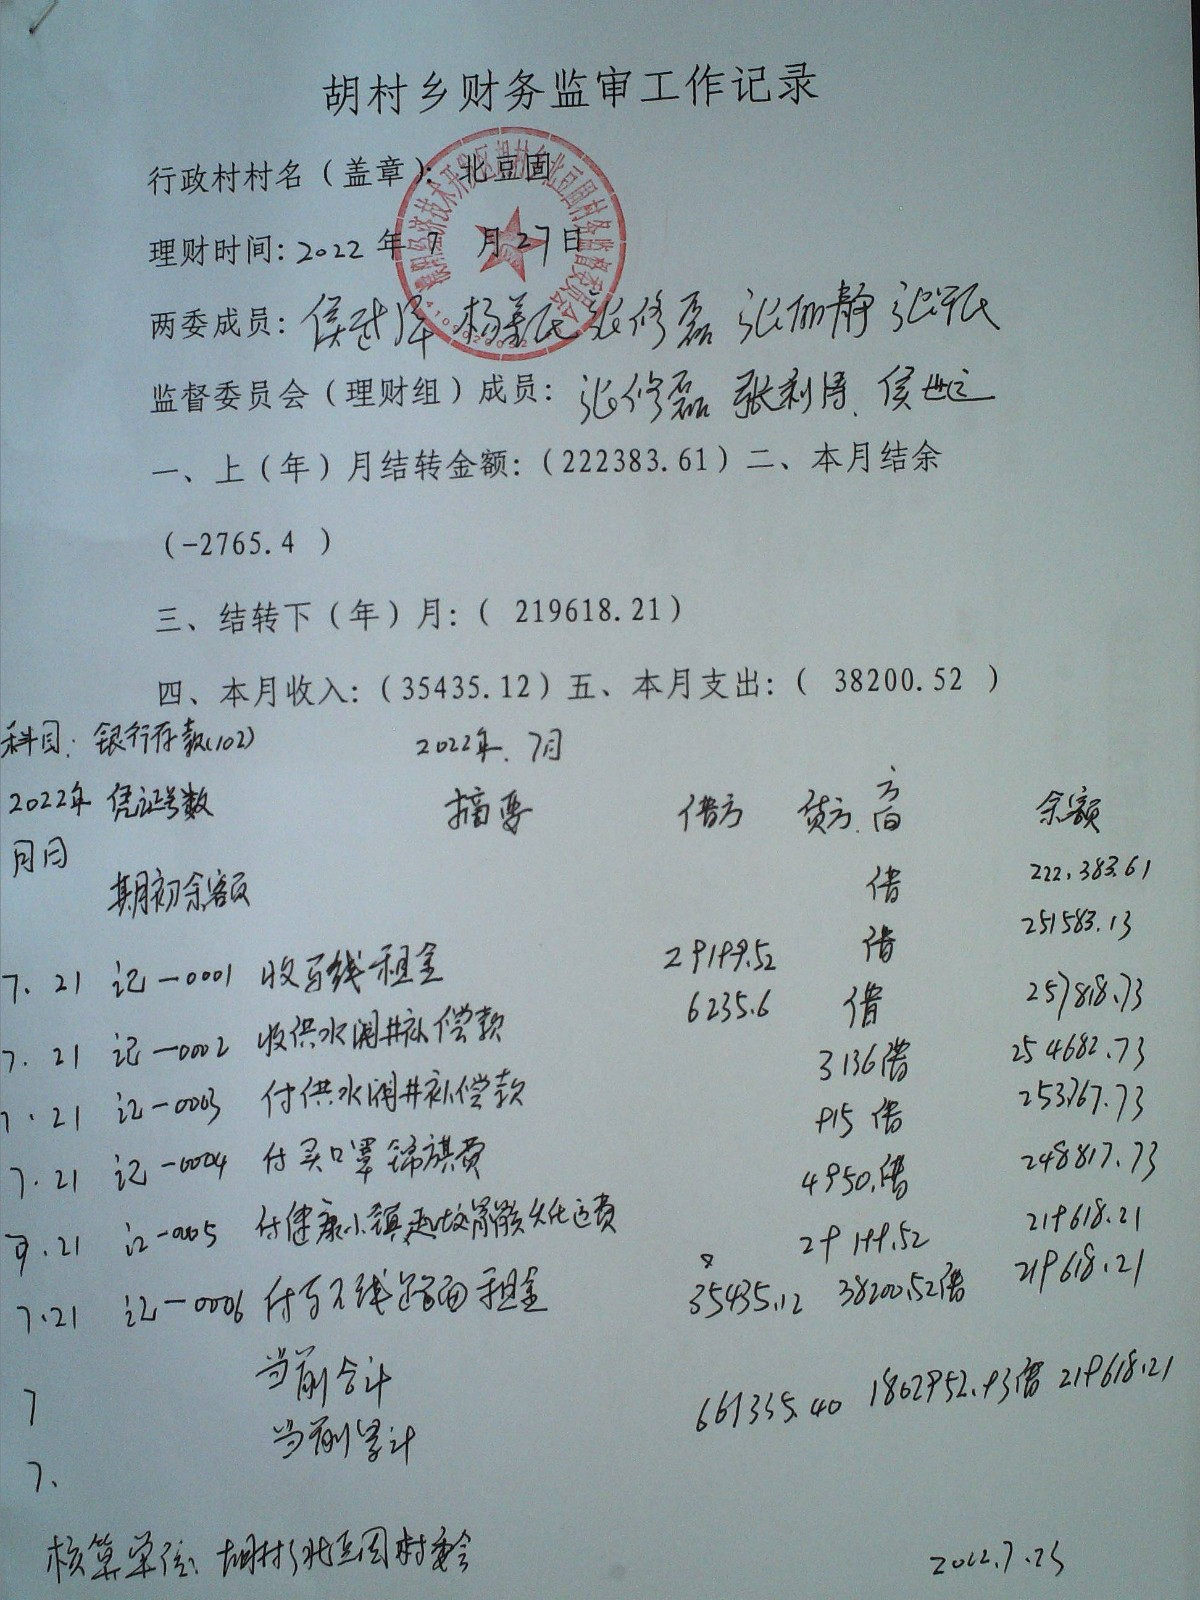 胡村乡财务监审工作记录
行政村村名（盖章）：北豆固
理财时间：2022年7月27日
两委成员： 张修磊 张丽静
监督委员会（理财组）成员：张修磊 张利涛 侯世运
一、上（年）月结转金额：（222383.61）二、本月结余
（-2765.4 ）
三、结转下（年）月：（ 219618.21）
四、本月收入：（35435.12）五、本月支出：（ 38200.52 ）
科目：银行存款(102) 2022年.7月
2022年 凭证号数 摘要 借方 贷方 方向 余额
月日
期初余额 借 222,383.61
7.21 记-0001 收 线租金 29199.52 借 251583.13
7.21 记-0002 收供水闸井补偿款 6235.6 借 257818.73
7.21 记-0003 付供水闸井补偿款 3136 借 254682.73
7.21 记-0004 付买口罩锦旗费 915 借 253767.73
7.21 记-0005 付健康小镇 运费 4950. 借 248817.73
7.21 记-0006 付 线 租金 29199.52 219618.21
7 当前合计 35435.12 38200.52 借 219618.21
7. 当前累计 661335.40 1802952.93 借 219618.21
核算单位：胡村乡北豆固村委会 2022.7.25